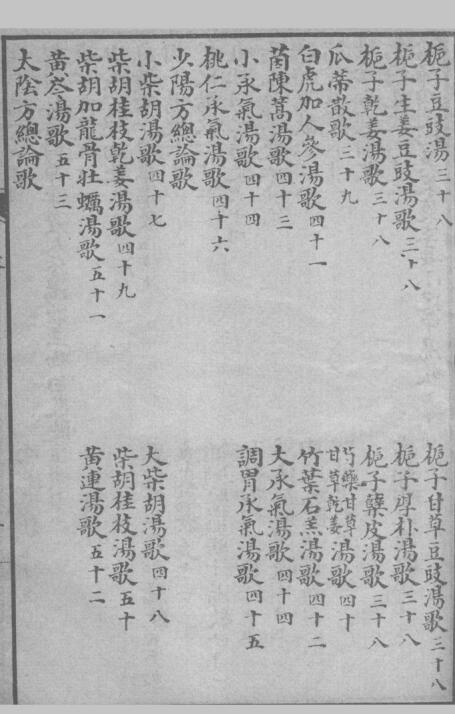 梔子豆豉湯三十八　梔子甘草豆豉湯歌三十八
梔子生姜豆豉湯歌三十八　梔子厚朴湯歌三十八
梔子乾姜湯歌三十八　梔子蘗皮湯歌三十八
瓜蒂散歌三十九　芍藥甘草甘草乾姜湯歌四十
白虎加人參湯歌四十一　竹葉石羔湯歌四十二
茵陳蒿湯歌四十三　大承氣湯歌四十四
小承氣湯歌四十四　調胃承氣湯歌四十五
桃仁承氣湯歌四十六
少陽方總論歌
小柴胡湯歌四十七　大柴胡湯歌四十八
柴胡桂枝乾姜湯歌四十九　柴胡桂枝湯歌五十
柴胡加龍骨壯蠣湯歌五十一　黃連湯歌五十二
黃芩湯歌五十三
太陰方總論歌